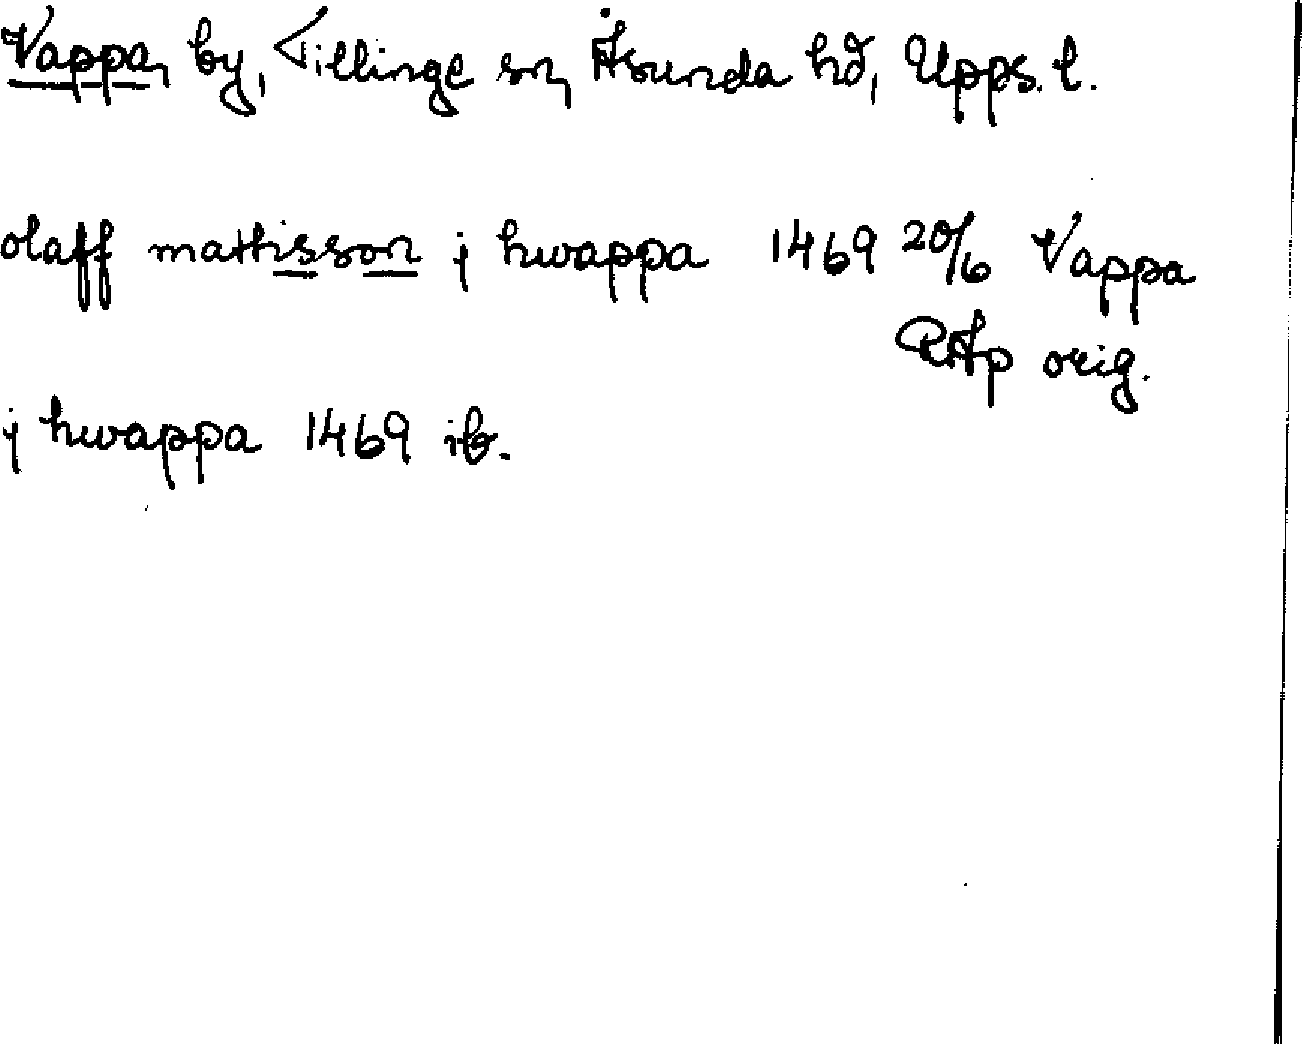 Vappa, by, Tillinge sn, Åsunda hd, Upps. l.
olaff mathisson j hwappa 1469 20/6 Vappa
RAp orig.
j hwappa 1469 ib.